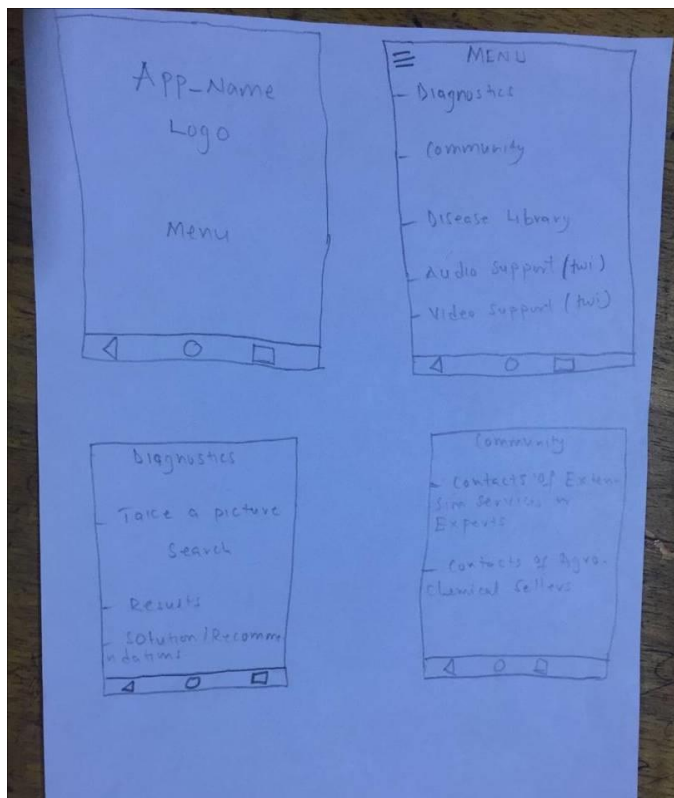 App_Name
Logo
Menu
MENU
- Diagnostics
- Community
- Disease Library
- Audio Support (twi)
- Video Support (twi)
Diagnostics
- Take a picture
Search
- Results
- Solution/Recomme
ndations
Community
- Contacts of Exten-
sion Services
Experts
- Contacts of Agro-
Chemical Sellers